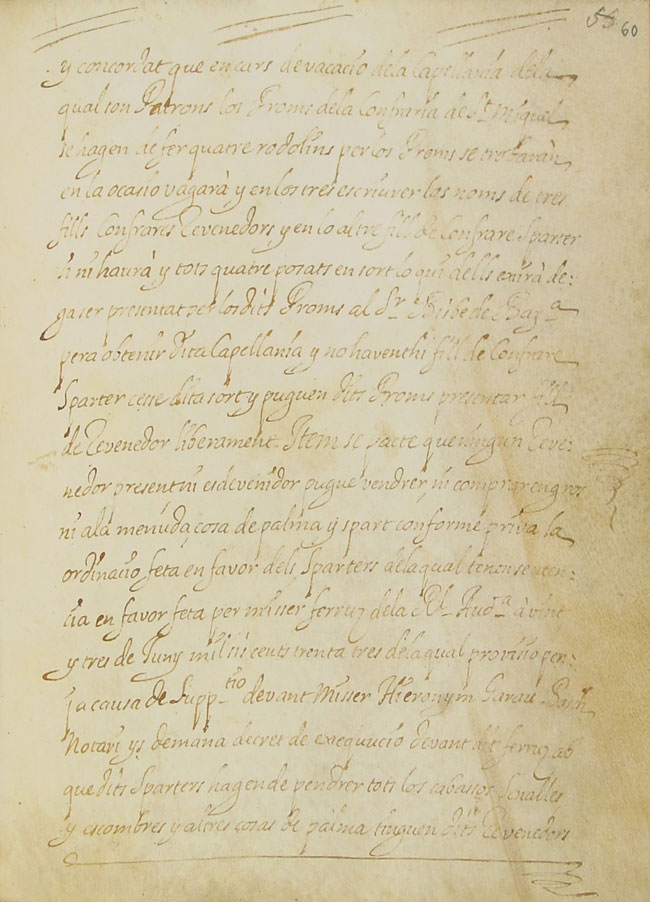 55 60
y concordat que en curs de vacacio de la Capellania de la
qual son Patrons los Proms de la Confraria de St. Miquel
se hagen de fer quatre rodolins per los Proms se trobaran
en la ocasio vagarà y en los tres escriurer los noms de tres
fills Confrares Revenedors y en lo altre fill de Confrare Sparter
si ni haurà y tots quatre posats en sort lo qui dells exirà de:
ga ser presentat per los dits Proms al Sr. Bisbe de Bar.a
pera obtenir dita Capellania y no haventhi fill de Confrare
Sparter cesse dita sort y puguen dits Proms presentar fill
de Revenedor liberament. Item se pacte que ningun Reve:
nedor present ni esdevenidor pugue vendrer, ni comprar en gros
ni a la menuda cosa de palma y spart conforme priva la
ordinacio feta en favor dels Sparters de la qual tenen senten:
cia en favor feta per misser ferruz de la Rl. Aud.a à vint
y tres de Juny mil sis cents trenta tres de la qual provisio pen:
ja causa de supp.tio devant Misser Hieronym Garau
Notari y demana decret de exequucio devant dit ferruz ab
que dits Sparters hagen de pendrer tots los cabassos senalles
y escombres y altres cosas de palma tinguen dits Revenedors